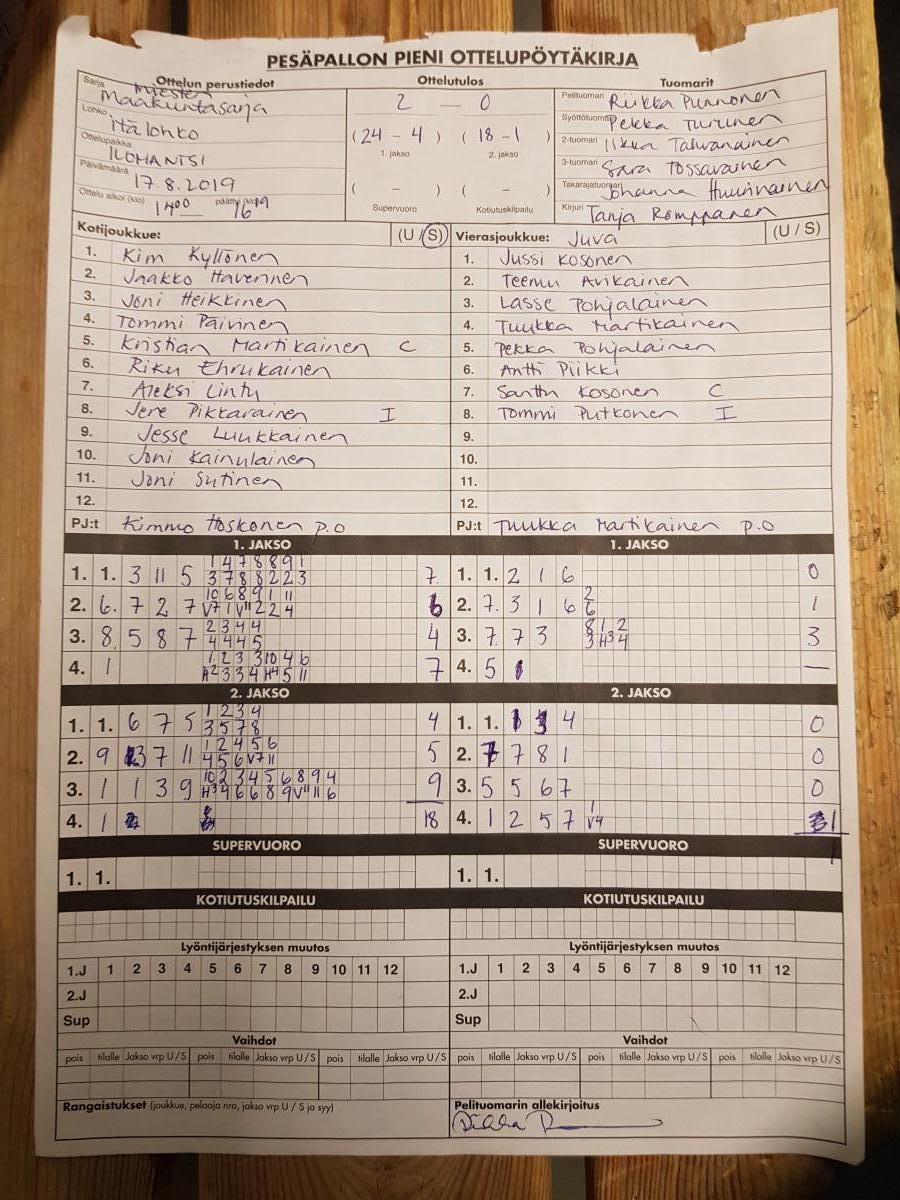 PESÄPALLON PIENI OTTELUPÖYTÄKIRJA
Ottelun perustiedot
Sarja Miesten Maakuntasarja
Lohko Itälohko
Ottelupaikka ILOMANTSI
Päivämäärä 17.8.2019
Ottelu alkoi (klo) 14 00 päättyi (klo) 16 19
Ottelutulos
2 — 0
(24 - 4) (18 - 1)
1. jakso 2. jakso
( - ) ( - )
Supervuoro Kotiutuskilpailu
Tuomarit
Pelituomari Riikka Punnonen
Syöttötuomari Pekka Turunen
2-tuomari Iikka Tahvanainen
3-tuomari Sara Tossavainen
Takarajatuomari Johanna Huurinainen
Kirjuri Tanja Romppanen
Kotijoukkue: (U / S)
1. Kim Kyllönen
2. Jaakko Haverinen
3. Joni Heikkinen
4. Tommi Päivinen
5. Kristian Martikainen C
6. Riku Ehrukainen
7. Aleksi Lintu
8. Jere Pikkarainen I
9. Jesse Luukkainen
10. Joni Kainulainen
11. Joni Sutinen
12.
PJ:t Kimmo Hoskonen p.o
Vierasjoukkue: Juva (U / S)
1. Jussi Kosonen
2. Teemu Avikainen
3. Lasse Pohjalainen
4. Tuukka Martikainen
5. Pekka Pohjalainen
6. Antti Piikki
7. Santtu Kosonen C
8. Tommi Putkonen I
9.
10.
11.
12.
PJ:t Tuukka Martikainen p.o
1. JAKSO
1 4 7 8 8 9 1
1. 1. 3 11 5 3 7 8 8 2 2 3 7
10 6 8 9 1 11
2. 6. 7 2 7 V7 1 V11 2 2 4 6
2 3 4 4
3. 8. 5 8 7 4 4 4 5 4
1 2 3 3 10 4 6
4. 1 H2 3 3 4 H4 5 11 7
1. JAKSO
1. 1. 2 1 6 0
2
2. 7. 3 1 6 6 1
8 1 2
3. 7. 7 3 3 H3 4 3
4. 5 —
2. JAKSO
1 2 3 4
1. 1. 6 7 5 3 5 7 8 4
1 2 4 5 6
2. 9 3 7 11 4 5 6 V7 11 5
10 2 3 4 5 6 8 9 4
3. 1 1 3 9 H3 4 6 6 8 9 V11 11 6 9
4. 1 18
2. JAKSO
1. 1. 4 0
2. 7 7 8 1 0
3. 5 5 6 7 0
1
4. 1 2 5 7 V4 1
1
SUPERVUORO
1. 1.
SUPERVUORO
1. 1.
KOTIUTUSKILPAILU
KOTIUTUSKILPAILU
Lyöntijärjestyksen muutos
1.J 1 2 3 4 5 6 7 8 9 10 11 12
2.J
Sup
Lyöntijärjestyksen muutos
1.J 1 2 3 4 5 6 7 8 9 10 11 12
2.J
Sup
Vaihdot
pois tilalle Jakso vrp U / S pois tilalle Jakso vrp U / S pois tilalle Jakso vrp U / S
Vaihdot
pois tilalle Jakso vrp U / S pois tilalle Jakso vrp U / S pois tilalle Jakso vrp U / S
Rangaistukset (joukkue, pelaaja nro, jakso vrp U / S ja syy)
Pelituomarin allekirjoitus